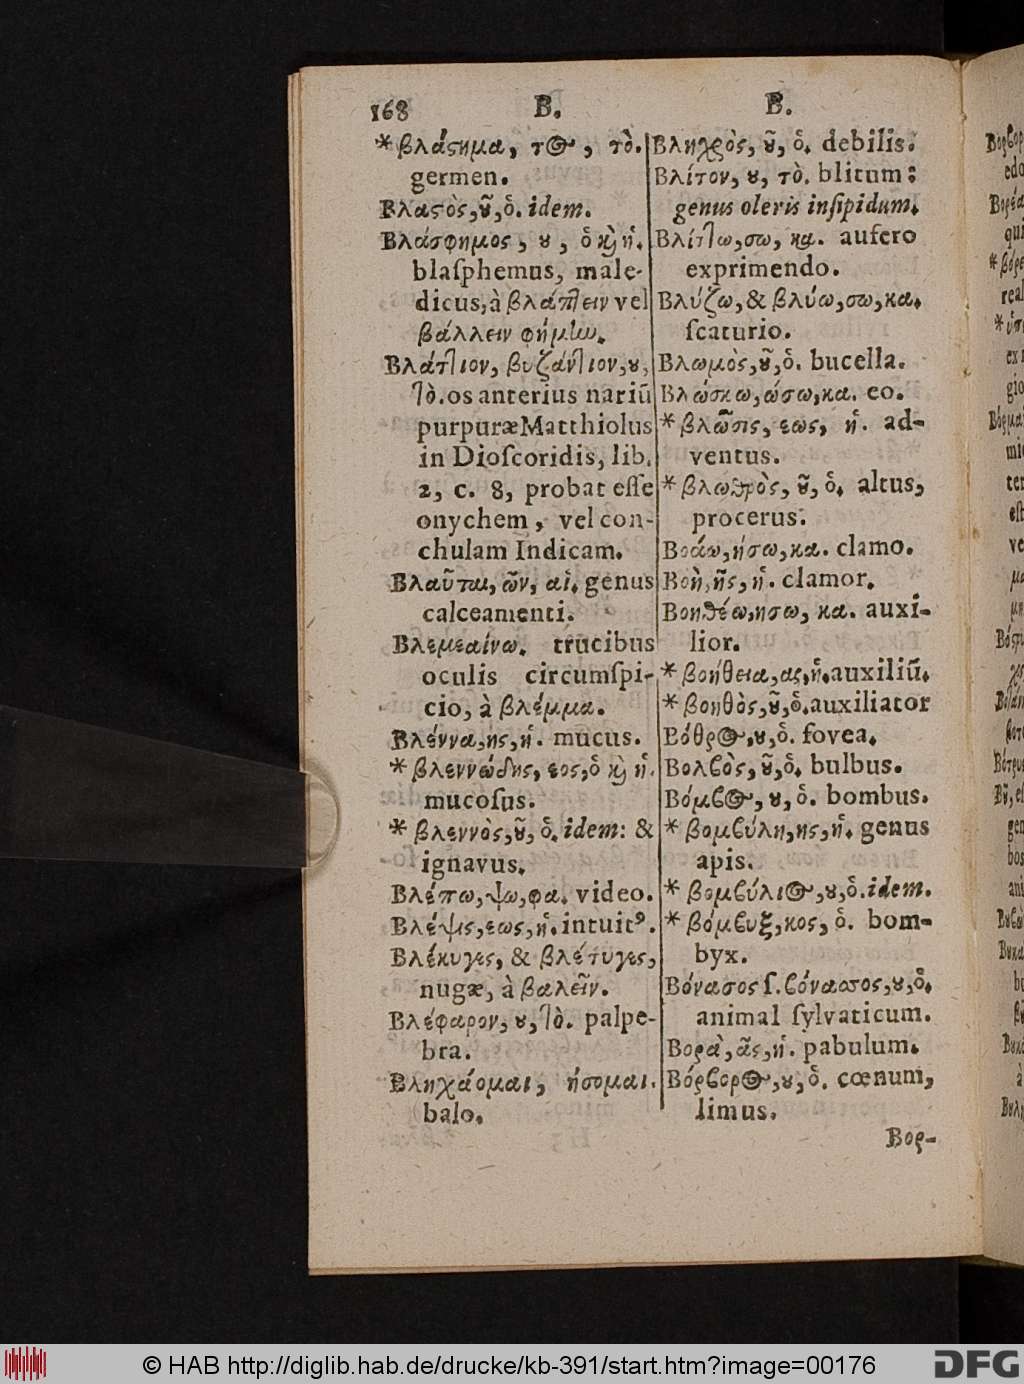 168 B. B.
* βλάστημα, τος, τὸ.
germen.
Βλαστὸς, οῦ, ὁ. idem.
Βλάσφημος, ου, ὁ καὶ ἡ.
blaſphemus, male-
dicus, à βλάπτειν vel
βάλλειν φήμην.
Βλάττιον, βυζάντιον, ου,
τὸ. os anterius nariũ
purpuræ Matthiolus
in Dioſcoridis, lib.
2, c. 8, probat eſſe
onychem, vel con-
chulam Indicam.
Βλαῦται, ῶν, αἱ. genus
calceamenti.
Βλεμεαίνω. trucibus
oculis circumſpi-
cio, à βλέμμα.
Βλέννα, ης, ἡ. mucus.
* βλεννώδης, εος, ὁ καὶ ἡ.
mucoſus.
* βλεννὸς, οῦ, ὁ. idem: &
ignavus.
Βλέπω, ψω, φα. video.
Βλέψις, εως, ἡ. intuitꝰ.
Βλέκυγες, & βλέτυγες,
nugæ, à βαλεῖν.
Βλέφαρον, ου, τὸ. palpe-
bra.
Βληχάομαι, ήσομαι.
balo.
Βληχρὸς, οῦ, ὁ. debilis.
Βλίτον, ου, τὸ. blitum:
genus oleris inſipidum.
Βλίττω, σω, κα. aufero
exprimendo.
Βλύζω, & βλύω, σω, κα.
ſcaturio.
Βλωμὸς, οῦ, ὁ. bucella.
Βλώσκω, ώσω, κα. eo.
* βλῶσις, εως, ἡ. ad-
ventus.
* βλωθρὸς, οῦ, ὁ. altus,
procerus.
Βοάω, ήσω, κα. clamo.
Βοὴ, ῆς, ἡ. clamor.
Βοηθέω, ησω, κα. auxi-
lior.
* βοήθεια, ας, ἡ. auxiliũ.
* βοηθὸς, οῦ, ὁ. auxiliator
Βόθρος, ου, ὁ. fovea.
Βολβὸς, οῦ, ὁ. bulbus.
Βόμβος, ου, ὁ. bombus.
* βομβύλη, ης, ἡ. genus
apis.
* βομβύλιος, ου, ὁ. idem.
* βόμβυξ, κος, ὁ. bom-
byx.
Βόνασος ſ. βόνασσος, ου, ὁ.
animal ſylvaticum.
Βορὰ, ᾶς, ἡ. pabulum.
Βόρβορος, ου, ὁ. cœnum,
limus.
Βορ-
© HAB http://diglib.hab.de/drucke/kb-391/start.htm?image=00176
DFG